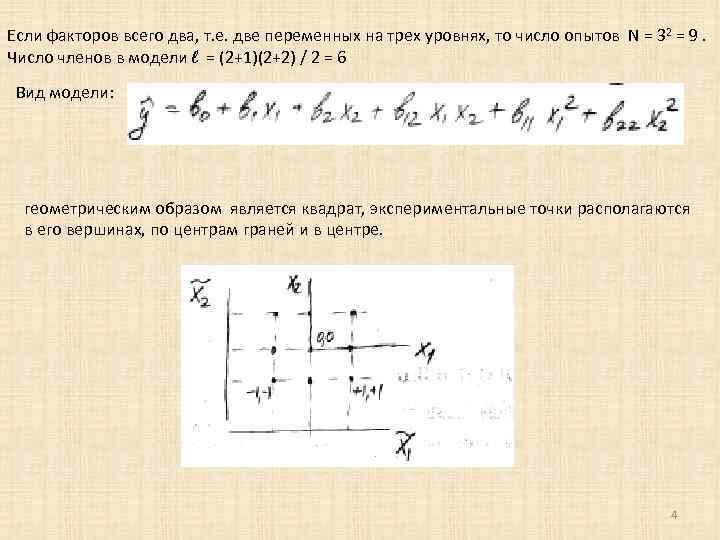 Если факторов всего два, т.е. две переменных на трех уровнях, то число опытов N = 3² = 9 .
Число членов в модели ℓ = (2+1)(2+2) / 2 = 6
Вид модели:
ŷ = b₀ + b₁x₁ + b₂x₂ + b₁₂x₁x₂ + b₁₁x₁² + b₂₂x₂²
геометрическим образом является квадрат, экспериментальные точки располагаются
в его вершинах, по центрам граней и в центре.
X̃₂
x₂
0,0
x₁
-1,-1
+1,+1
X̃₁
4